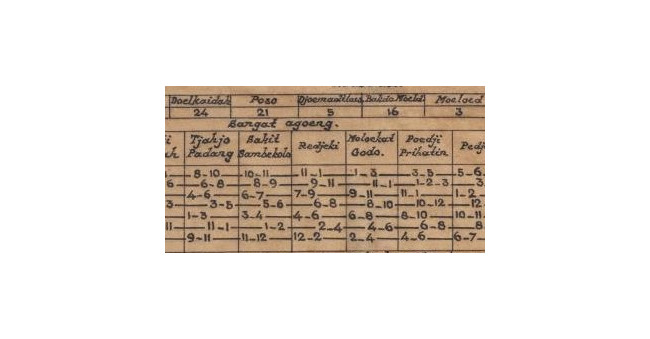 Doelkaidah Poso Djoemadilawal Bakda Moeloed Moeloed
24 21 5 16 3
Bangat agoeng.
Tjahjo Padang Bakit Sambekolo Redjeki Moloekat Godo. Poedji Prihatin Pedj
8-10 10-11 11-1 1-3 3-5 5-6
6 6-8 8-9 9-11 11-1 1-2-3 3
4-6 6-7 7-9 9-11 11-1 1-2
3 3-5 5-6 6-8 8-10 10-12 12
1-3 3-4 4-6 6-8 8-10 10-11
11 11-1 1-2 2-4 4-6 6-8 8
9-11 11-12 12-2 2-4 4-6 6-7